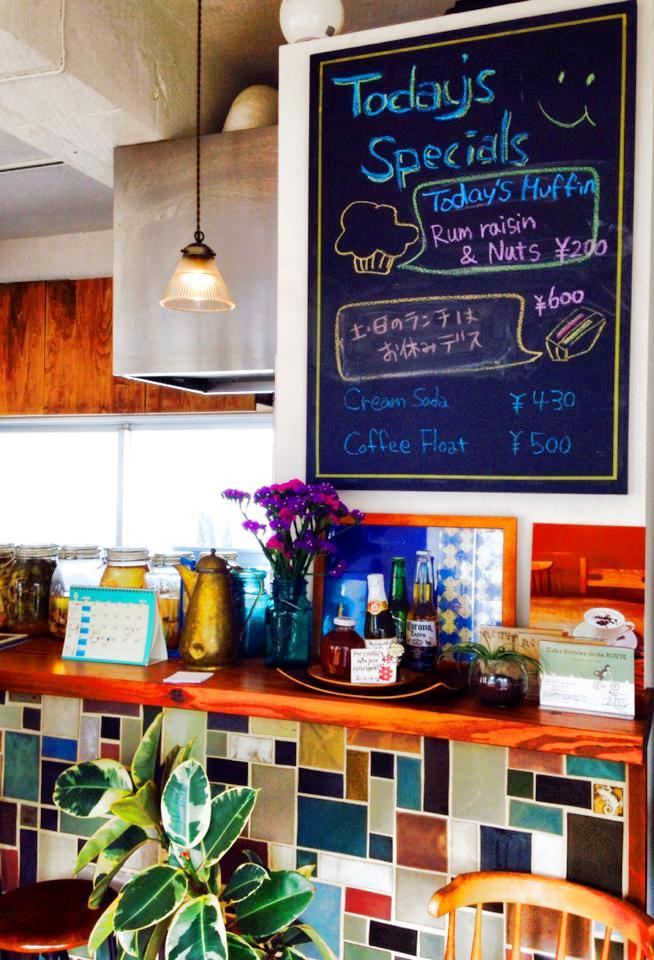 Today's
Specials
Today's Muffin
Rum raisin
& Nuts ¥200
¥600
土・日のランチは
お休みデス
Cream Soda ¥430
Coffee Float ¥500
Corona
Extra